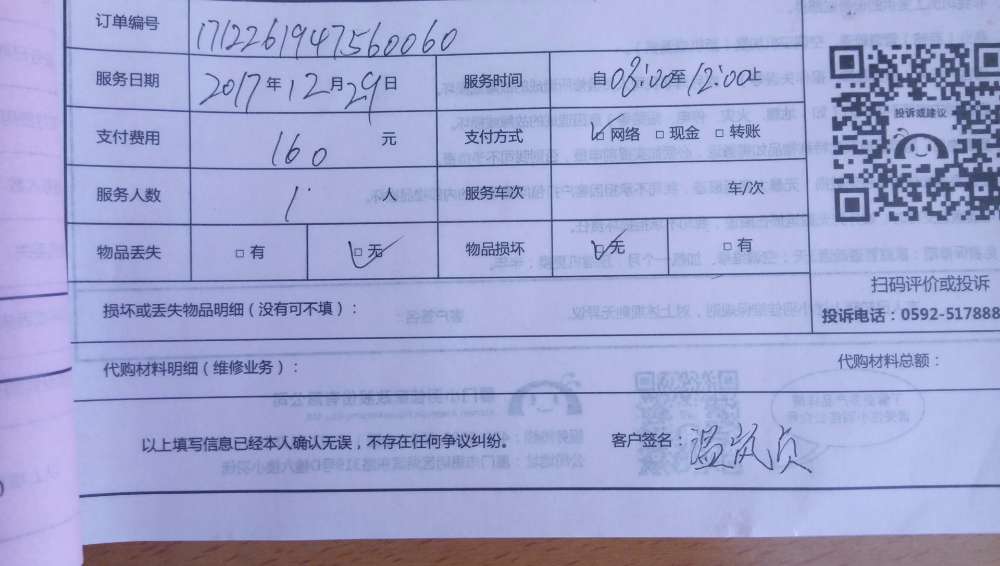 订单编号 1712261947560060
服务日期 2017年12月29日 服务时间 自08:00至12:00止
支付费用 160 元 支付方式 ☑网络 □现金 □转账
服务人数 1 人 服务车次 车/次
物品丢失 □有 ☑无 物品损坏 ☑无 □有
投诉或建议
扫码评价或投诉
损坏或丢失物品明细（没有可不填）：
投诉电话：0592-517888
代购材料明细（维修业务）： 代购材料总额：
以上填写信息已经本人确认无误，不存在任何争议纠纷。 客户签名：